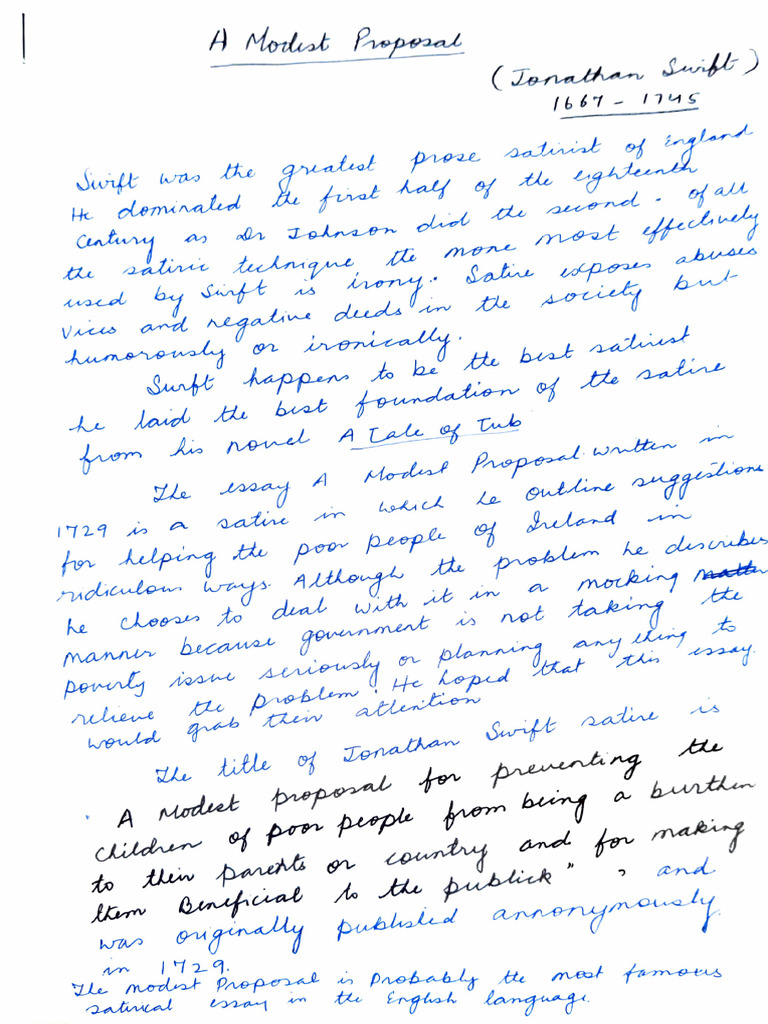 A Modest Proposal
(Jonathan Swift)
1667 - 1745
Swift was the greatest prose satirist of England
He dominated the first half of the eighteenth
Century as Dr Johnson did the second. of all
the satiric technique the more most effectively
used by Swift is irony. Satire exposes abuses
Vices and negative deeds in the society but
humorously or ironically.
Swift happens to be the best satirist
he laid the best foundation of the satire
from his novel A Tale of Tub
The essay A Modest Proposal written in
1729 is a satire in which he outline suggestions
for helping the poor people of Ireland in
ridiculous ways. Although the problem he describes
he chooses to deal with it in a mocking
manner because government is not taking the
poverty issue seriously or planning anything to
relieve the problem. He hoped that this essay
would grab their attention
The title of Jonathan Swift satire is
" A Modest proposal for preventing the
Children of poor people from being a burthen
to their parents or country and for making
them Beneficial to the publick" , and
was originally published annonymously
in 1729.
The modest Proposal is Probably the most famous
satirical essay in the English language.